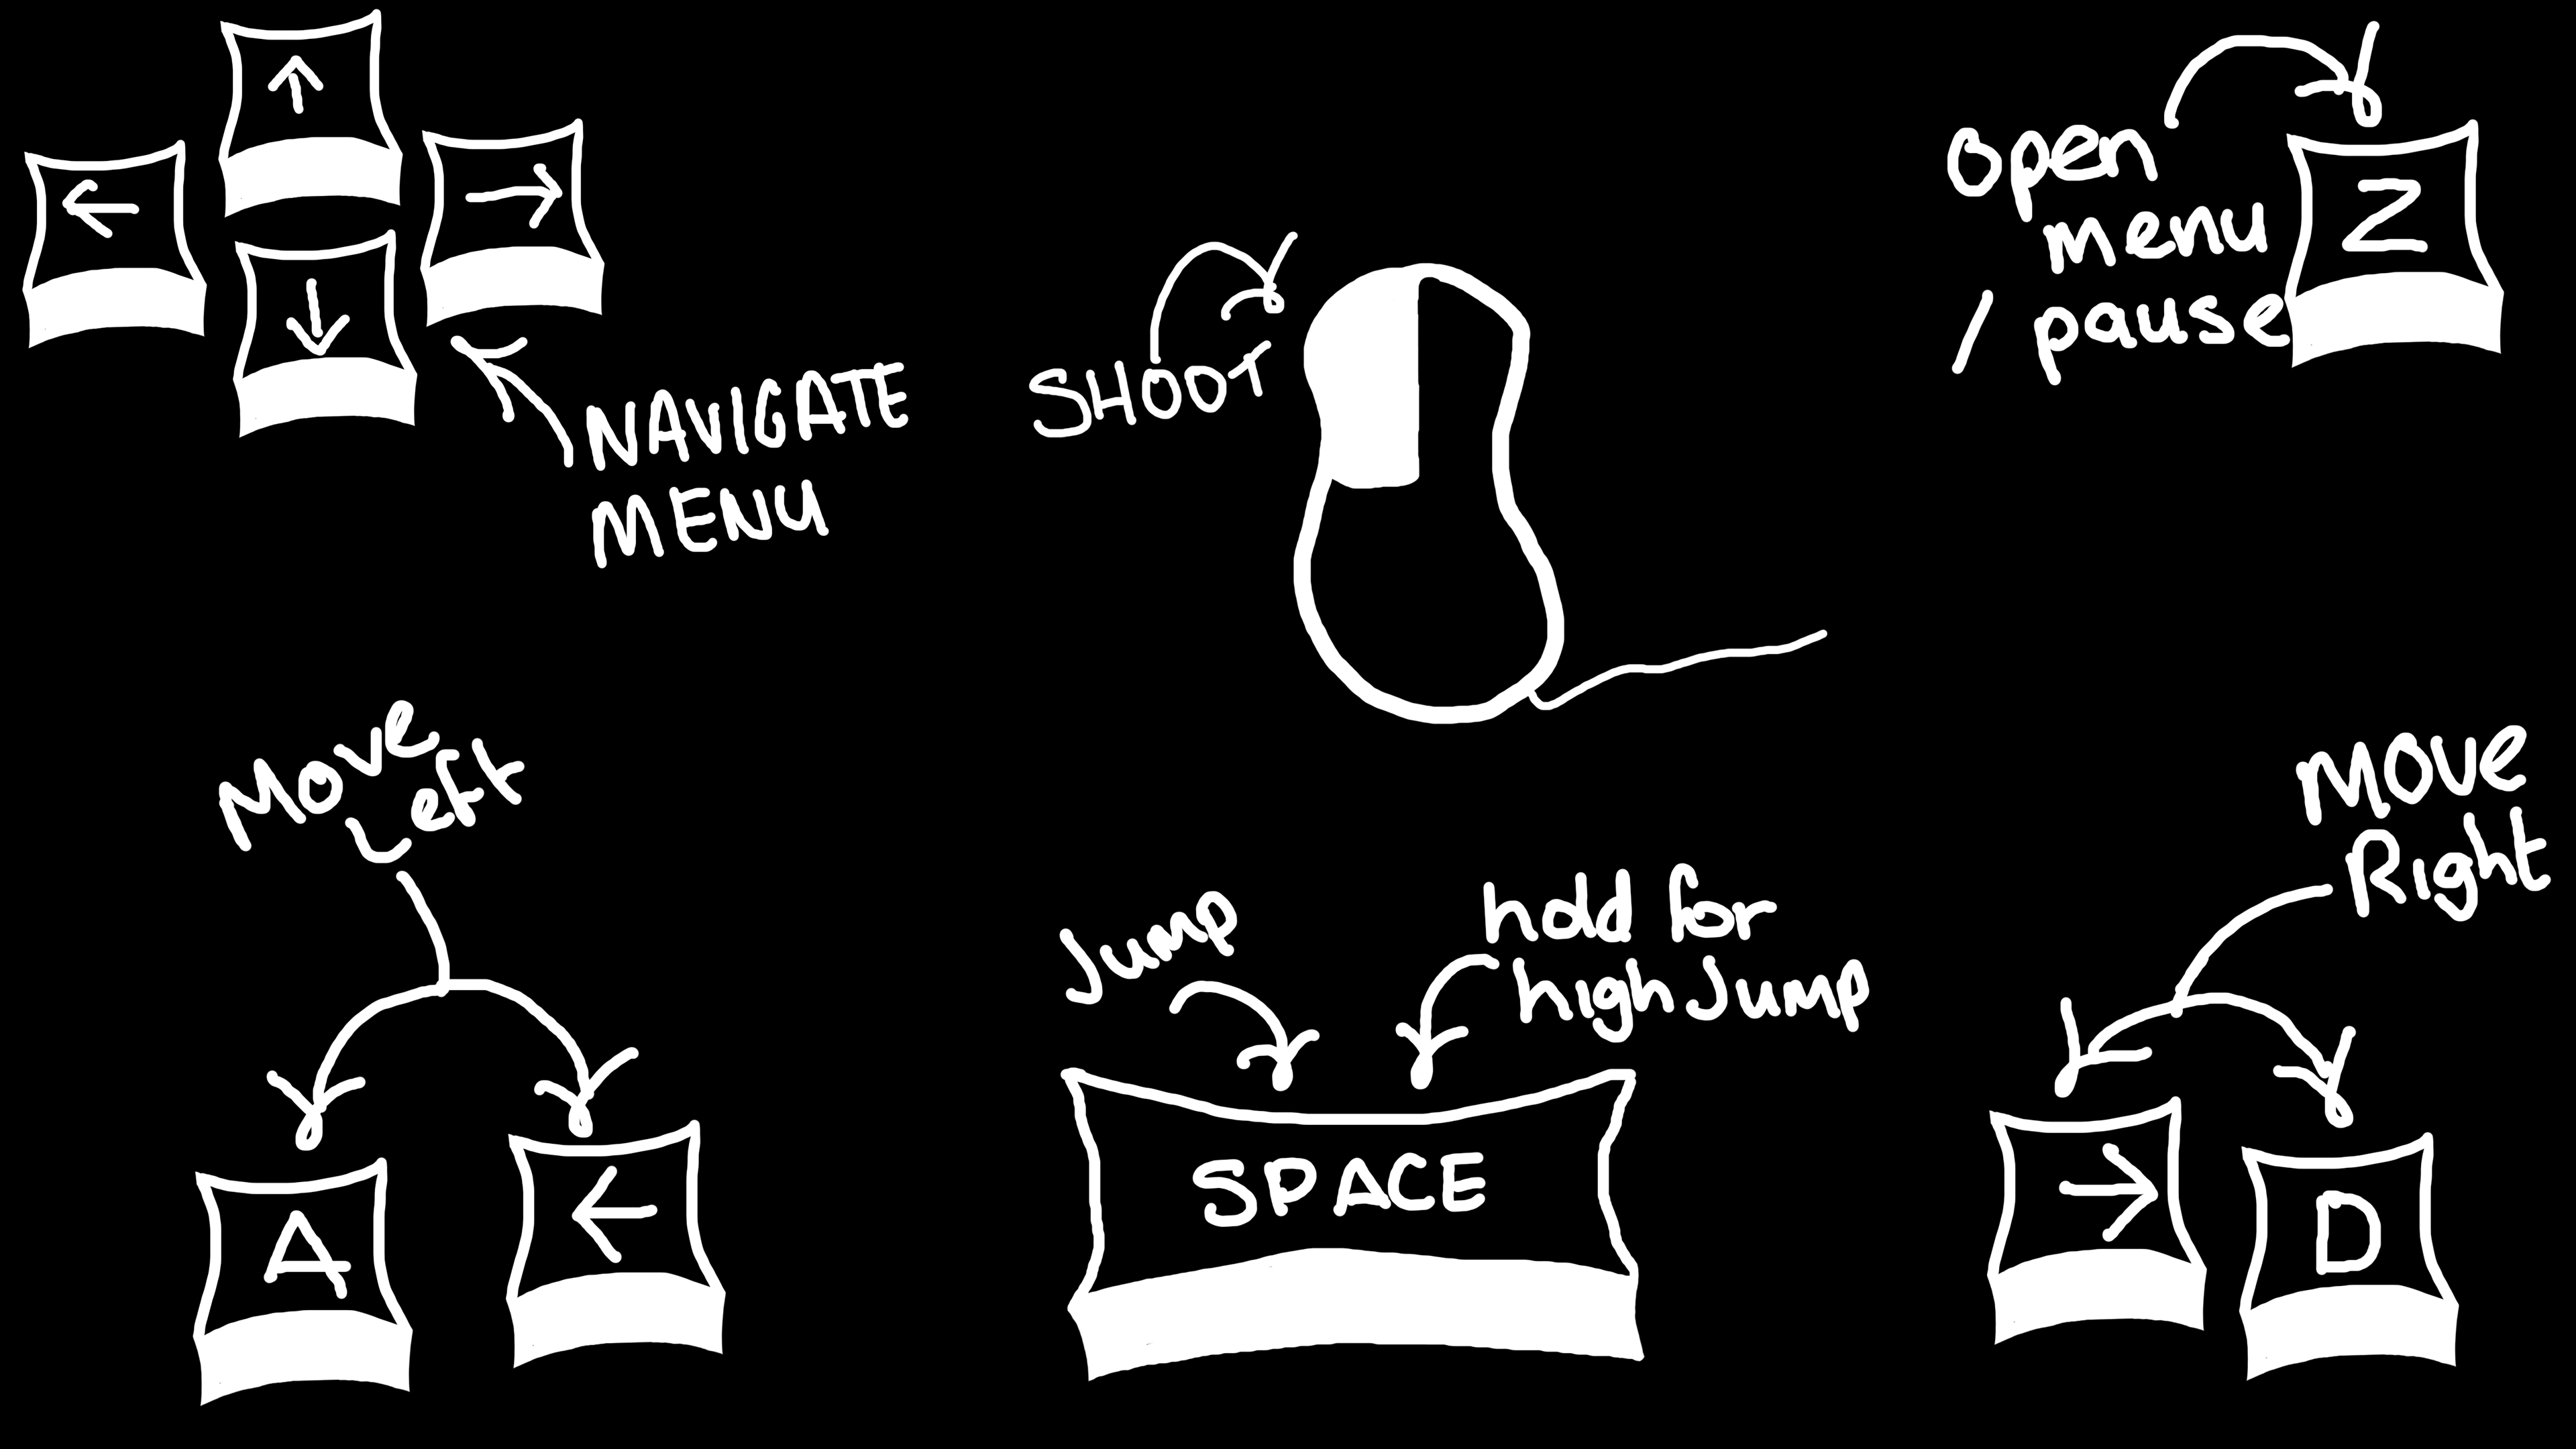 ↑
←
→
↓
NAVIGATE
MENU
SHOOT
Open
menu
/ pause
Z
Move
Left
A
←
Jump
hold for
high Jump
SPACE
Move
Right
→
D